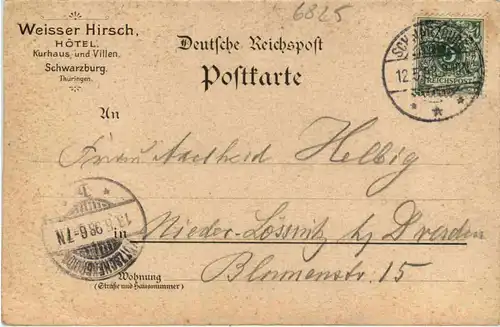 6825
Weisser Hirsch,
HÔTEL.
Kurhaus und Villen,
Schwarzburg.
Thüringen.
Deutsche Reichspost
Postkarte
REICHSPOST
An
Frau Adelheid Helbig
in Nieder-Lössnitz b/ Dresden
Wohnung
(Straße und Hausnummer)
Blumenstr. 15